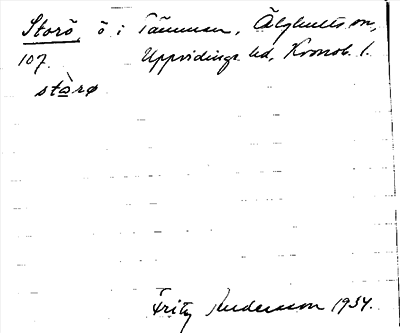 Storö, ö i Tämmen, Älghults sn,
107. Uppvidinge hd, Kronob. l.
stòrø
Fritz Andersson 1934.